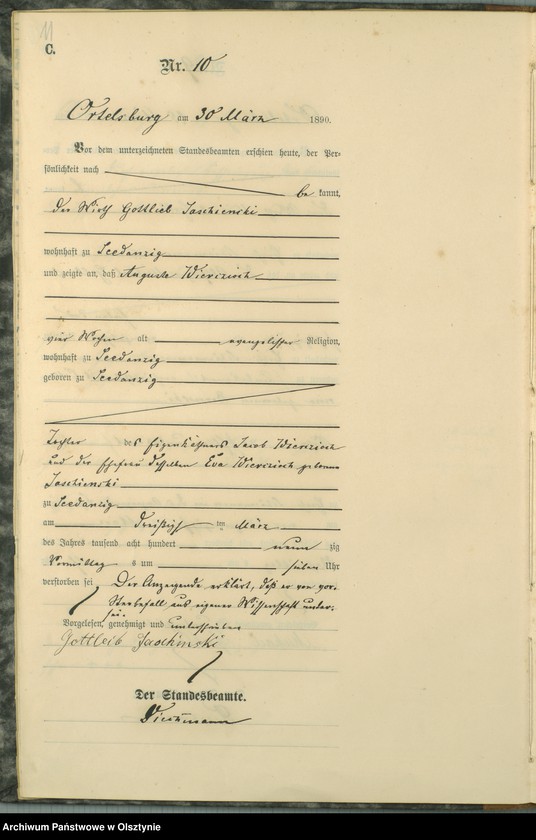 11
C.
Nr. 10
Ortelsburg am 30 März 1890.
Vor dem unterzeichneten Standesbeamten erschien heute, der Per-
sönlichkeit nach
be kannt,
der Wirth Gottlieb Jaschienski
wohnhaft zu Seedanzig
und zeigte an, daß Auguste Wierczioch
vier Wochen alt evangelischer Religion,
wohnhaft zu Seedanzig
geboren zu Seedanzig
Tochter des Eigenkäthners Jacob Wierczioch
und der Ehefrau desselben Eva Wierczioch geborene
Jaschienski
zu Seedanzig
am dreißigsten März
des Jahres tausend acht hundert neun zig
Vormittag s um sieben Uhr
verstorben sei. Der Anzeigende erklärt, daß er von vor.
Sterbefall aus eigener Wissenschaft unter-
Vorgelesen, genehmigt und unterschrieben
Gottleib Jaschinski
Der Standesbeamte.
Archiwum Państwowe w Olsztynie